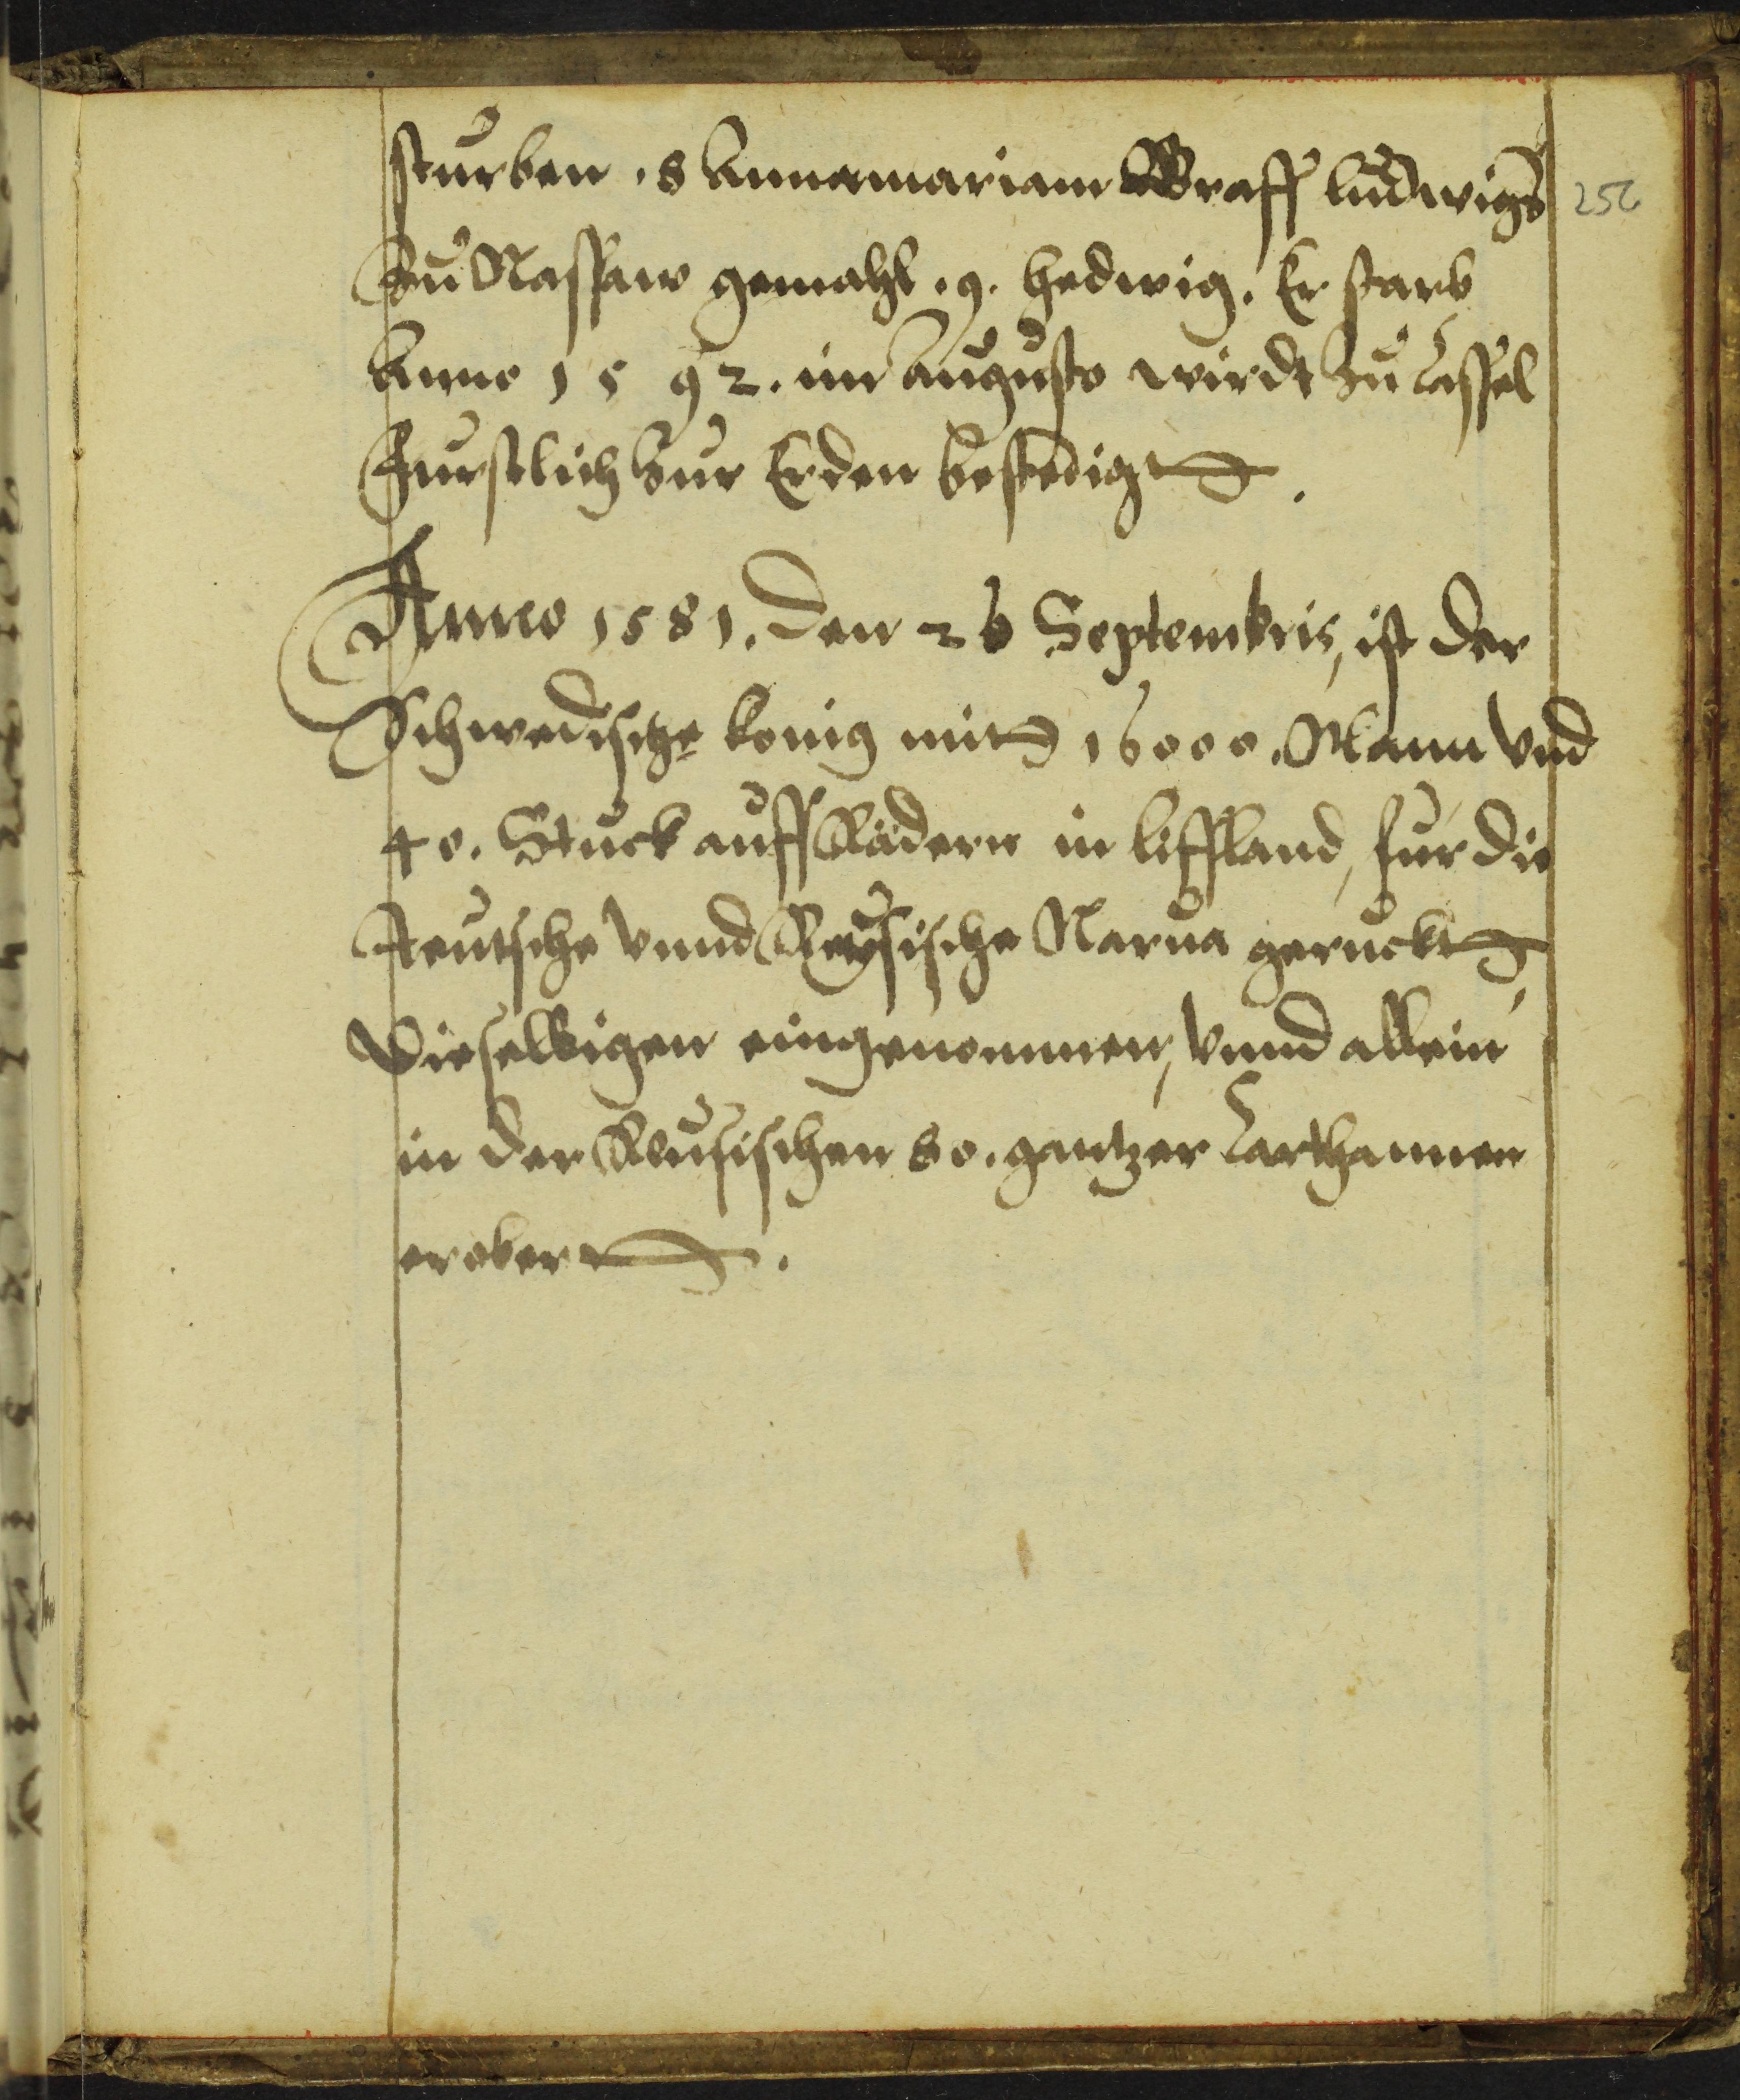 sturben .8 Annamariam Graff Ludwigs
256
Zu Nassaw gemahl .9. Hedwig. Er starb
Anno 1592. im Augusto wirdt Zu Cassel
Furstlich Zur Erden bestedigt.
Anno 1581. Den 26 Septembris, ist der
Schwedische konig mit 16000. Mann Vnd
40. Stuck auff Rädern in Liffland, fur die
Teutsche Vnnd Reusische Narua geruckt,
Dieselbigen eingenommen, Vnnd allein
in der Reusischen 80. gantzer Carthaunen
erobert.